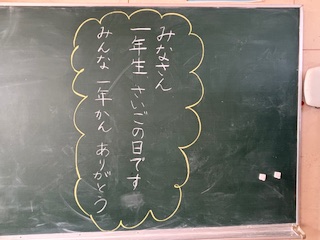 みなさん
一年生 さいごの日です
みんな 一年かん ありがとう